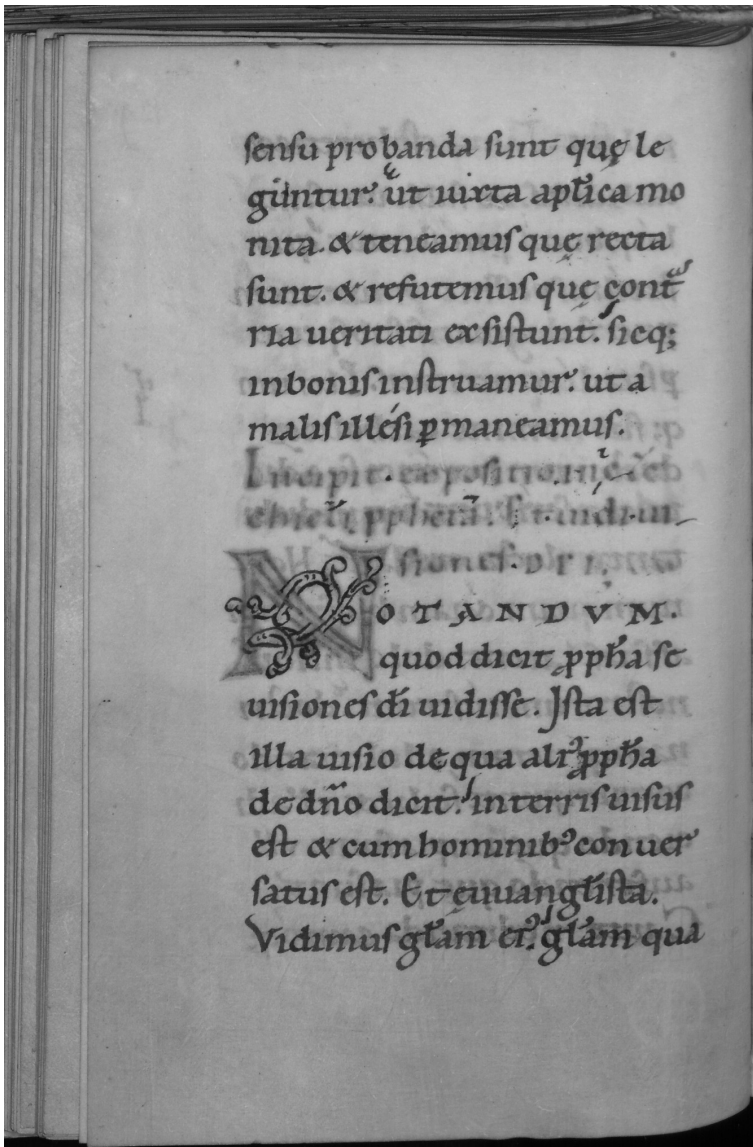 sensu probanda sunt quę le
guntur. ut iuxta apłica mo
nita. & teneamus quę recta
sunt. & refutemus quę contra
ria ueritati exsistunt. sicq;
in bonis instruamur. ut a
malis illęsi ꝑmaneamus.
Incipit expositio in
siones.
NOTANDVM.
quod dicit ꝓpħa se
uisiones dī uidisse. Ista est
illa uisio de qua alī ꝓpħa
de dn̄o dicit. in terris uisus
est & cum hominibꝰ conuer
satus est. Et ęuuangłista.
Vidimus głam eiꝰ. głam qua